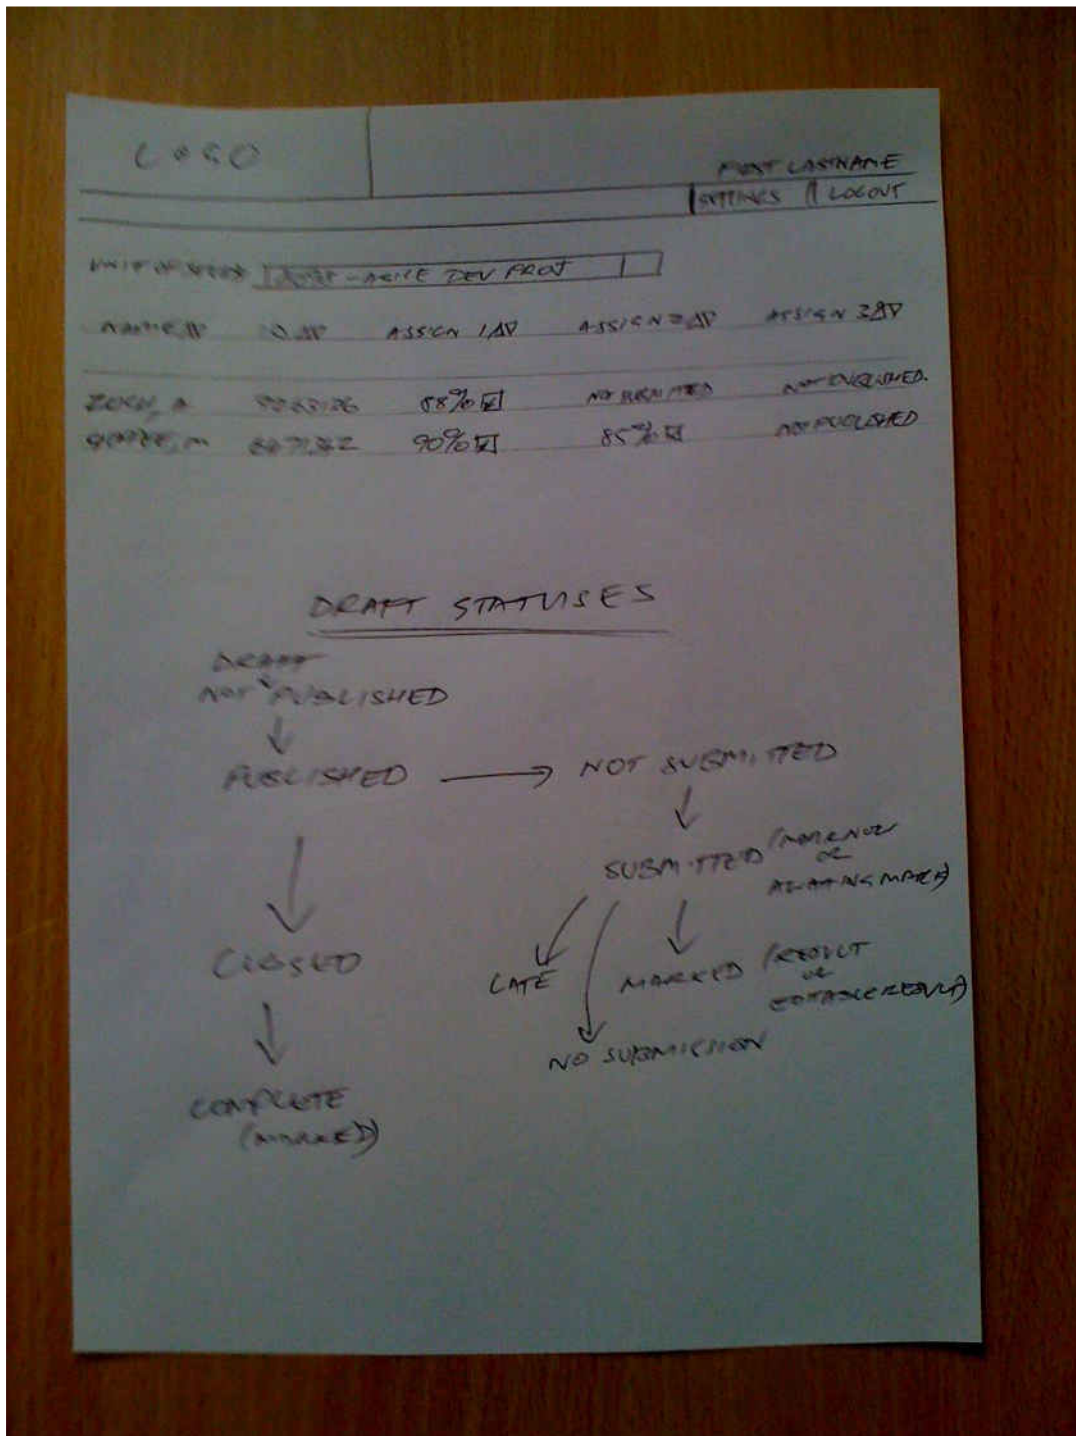 LOGO
FIRST LASTNAME
SETTINGS LOGOUT
UNIT OF STUDY - AGILE DEV PROJ
NAME ID ASSIGN 1 ASSIGN 2 ASSIGN 3
88% NOT SUBMITTED NOT PUBLISHED.
90% 85% NOT PUBLISHED
DRAFT STATUSES
DRAFT
NOT PUBLISHED
PUBLISHED → NOT SUBMITTED
SUBMITTED (MARK NOW
OR
AWAITING MARK)
CLOSED
LATE
MARKED (RESULT
OR
EDITABLE RESULT)
NO SUBMISSION
COMPLETE
(MARKED)